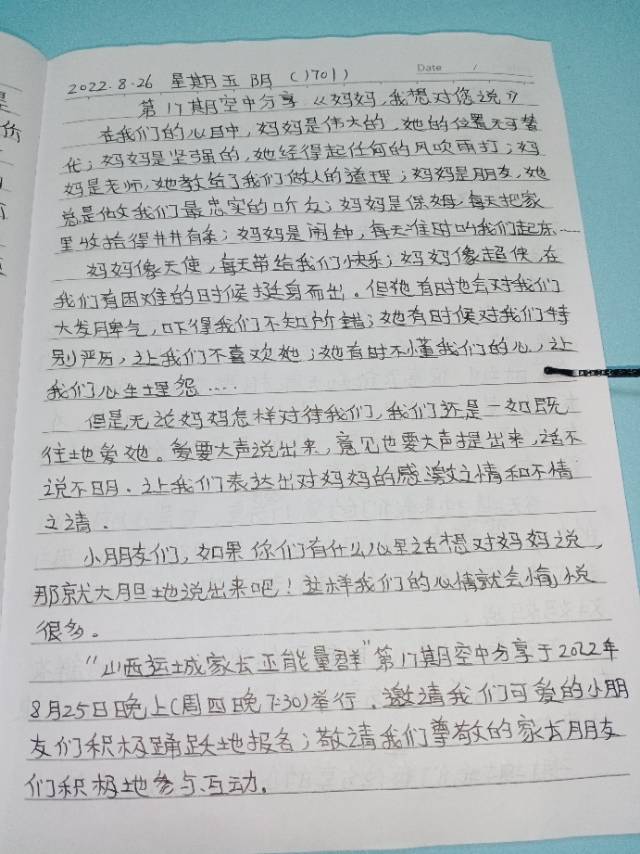 Date /
2022.8.26 星期五 阴 (1701)
第17期空中分享《妈妈,我想对您说》
在我们的心目中,妈妈是伟大的,她的位置无可替
代;妈妈是坚强的,她经得起任何的风吹雨打;妈
妈是老师,她教给了我们做人的道理;妈妈是朋友,她
总是做我们最忠实的听友;妈妈是保姆,每天把家
里收拾得井井有条;妈妈是闹钟,每天准时叫我们起床……
妈妈像天使,每天带给我们快乐;妈妈像超侠,在
我们有困难的时候挺身而出。但她有时也会对我们
大发脾气,吓得我们不知所措;她有时候对我们特
别严厉,让我们不喜欢她;她有时不懂我们的心,让
我们心生埋怨……
但是,无论妈妈怎样对待我们,我们还是一如既
往地爱她。爱要大声说出来,意见也要大声提出来,话不
说不明.让我们表达出对妈妈的感激之情和不情
之请.
小朋友们,如果你们有什么心里话想对妈妈说,
那就大胆地说出来吧!这样我们的心情就会愉悦
很多。
“山西运城家长正能量群”第17期空中分享于2022年
8月25日晚上(周四晚7:30)举行.邀请我们可爱的小朋
友们积极踊跃地报名;敬请我们尊敬的家长朋友
们积极地参与、互动。